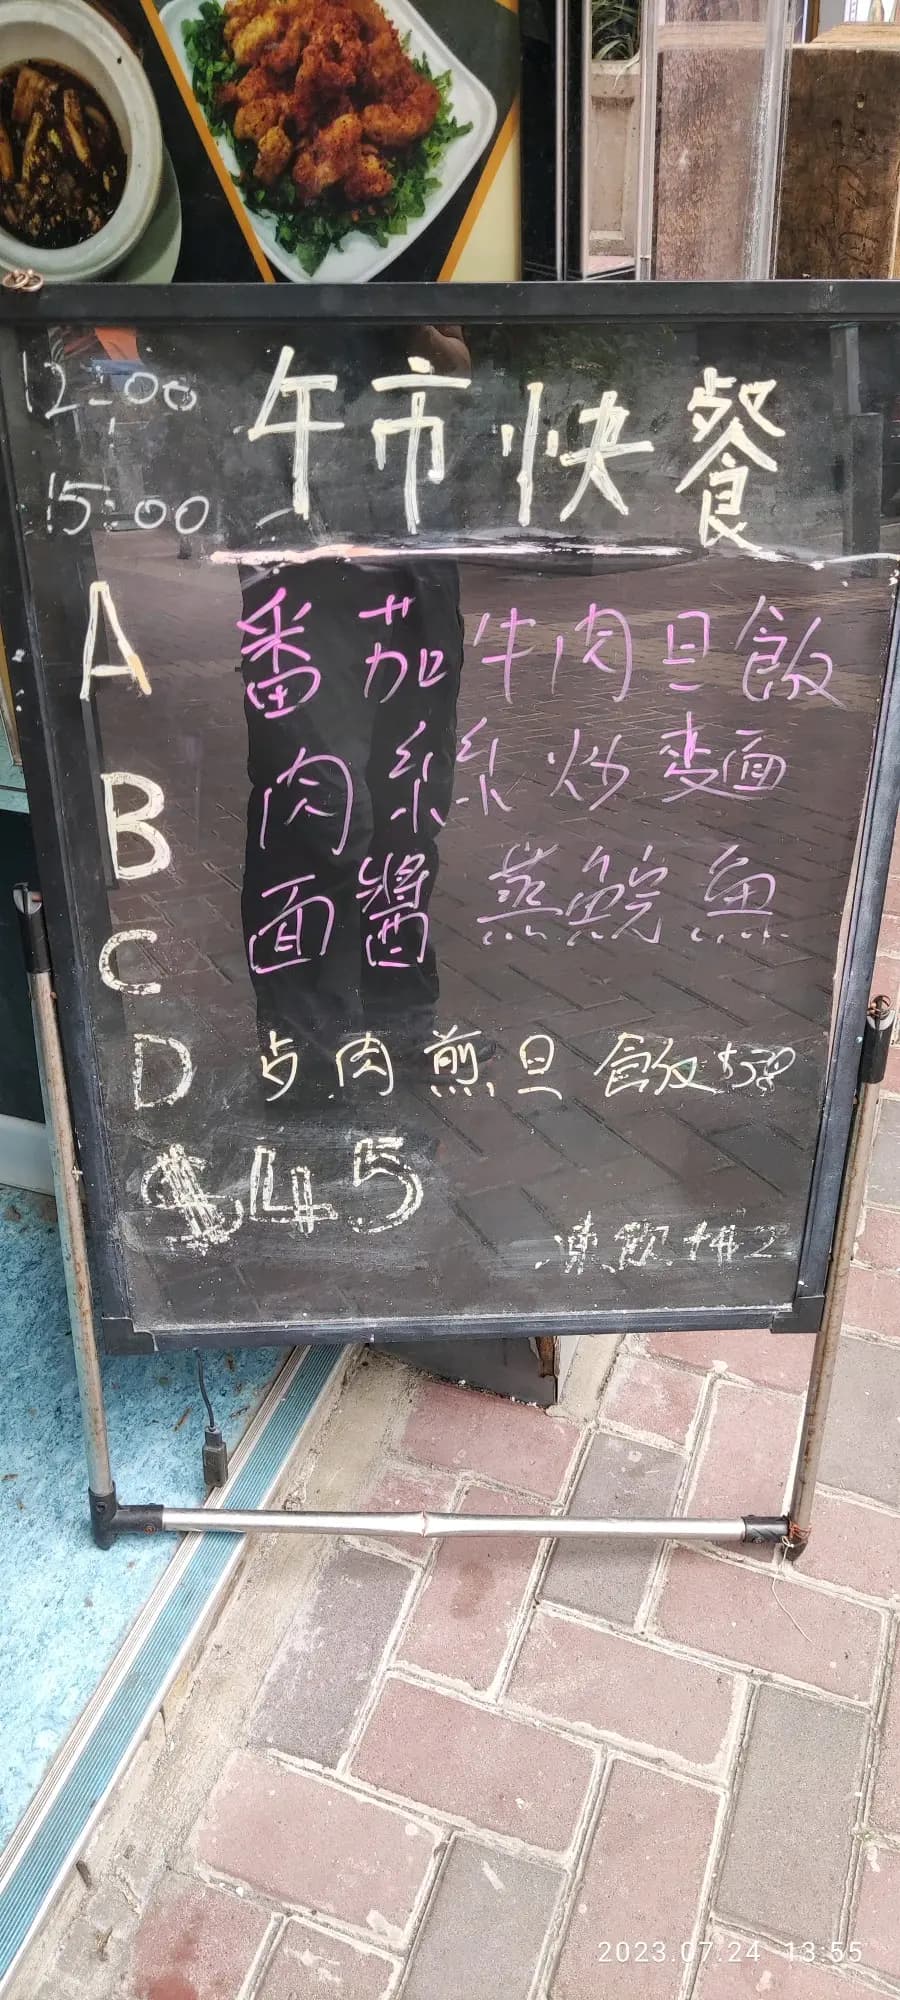 12:00
|
15:00
午市快餐
A 番茄牛肉旦飯
B 肉絲炒麵
C 面醬蒸鯇魚
D 占肉煎旦飯 $50
$45
凍飲加2
2023.07.24 13:55